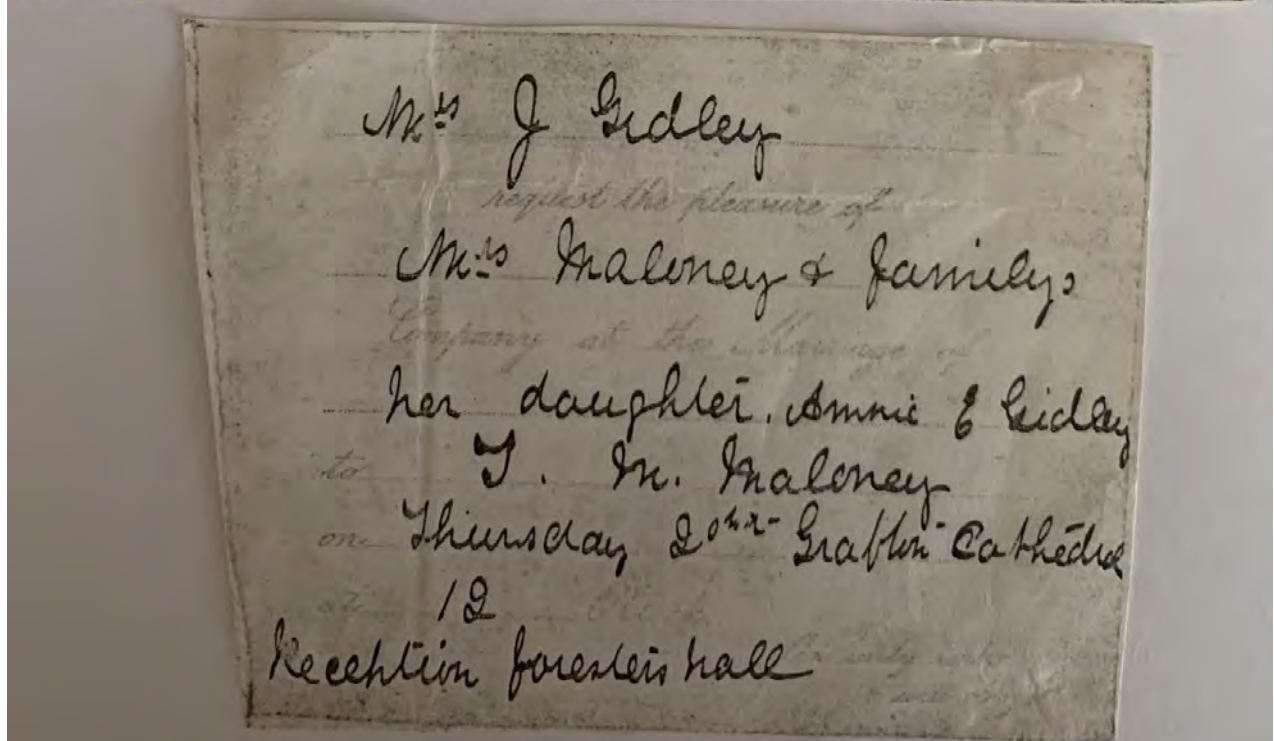 Mrs J Gidley
request the pleasure of
Mrs Maloney & familys
Company at the Marriage of
her daughter. Annie E Gidley
to T. M. Maloney
on Thursday 20th Grafton Cathedral
at 12
Reception foresters hall